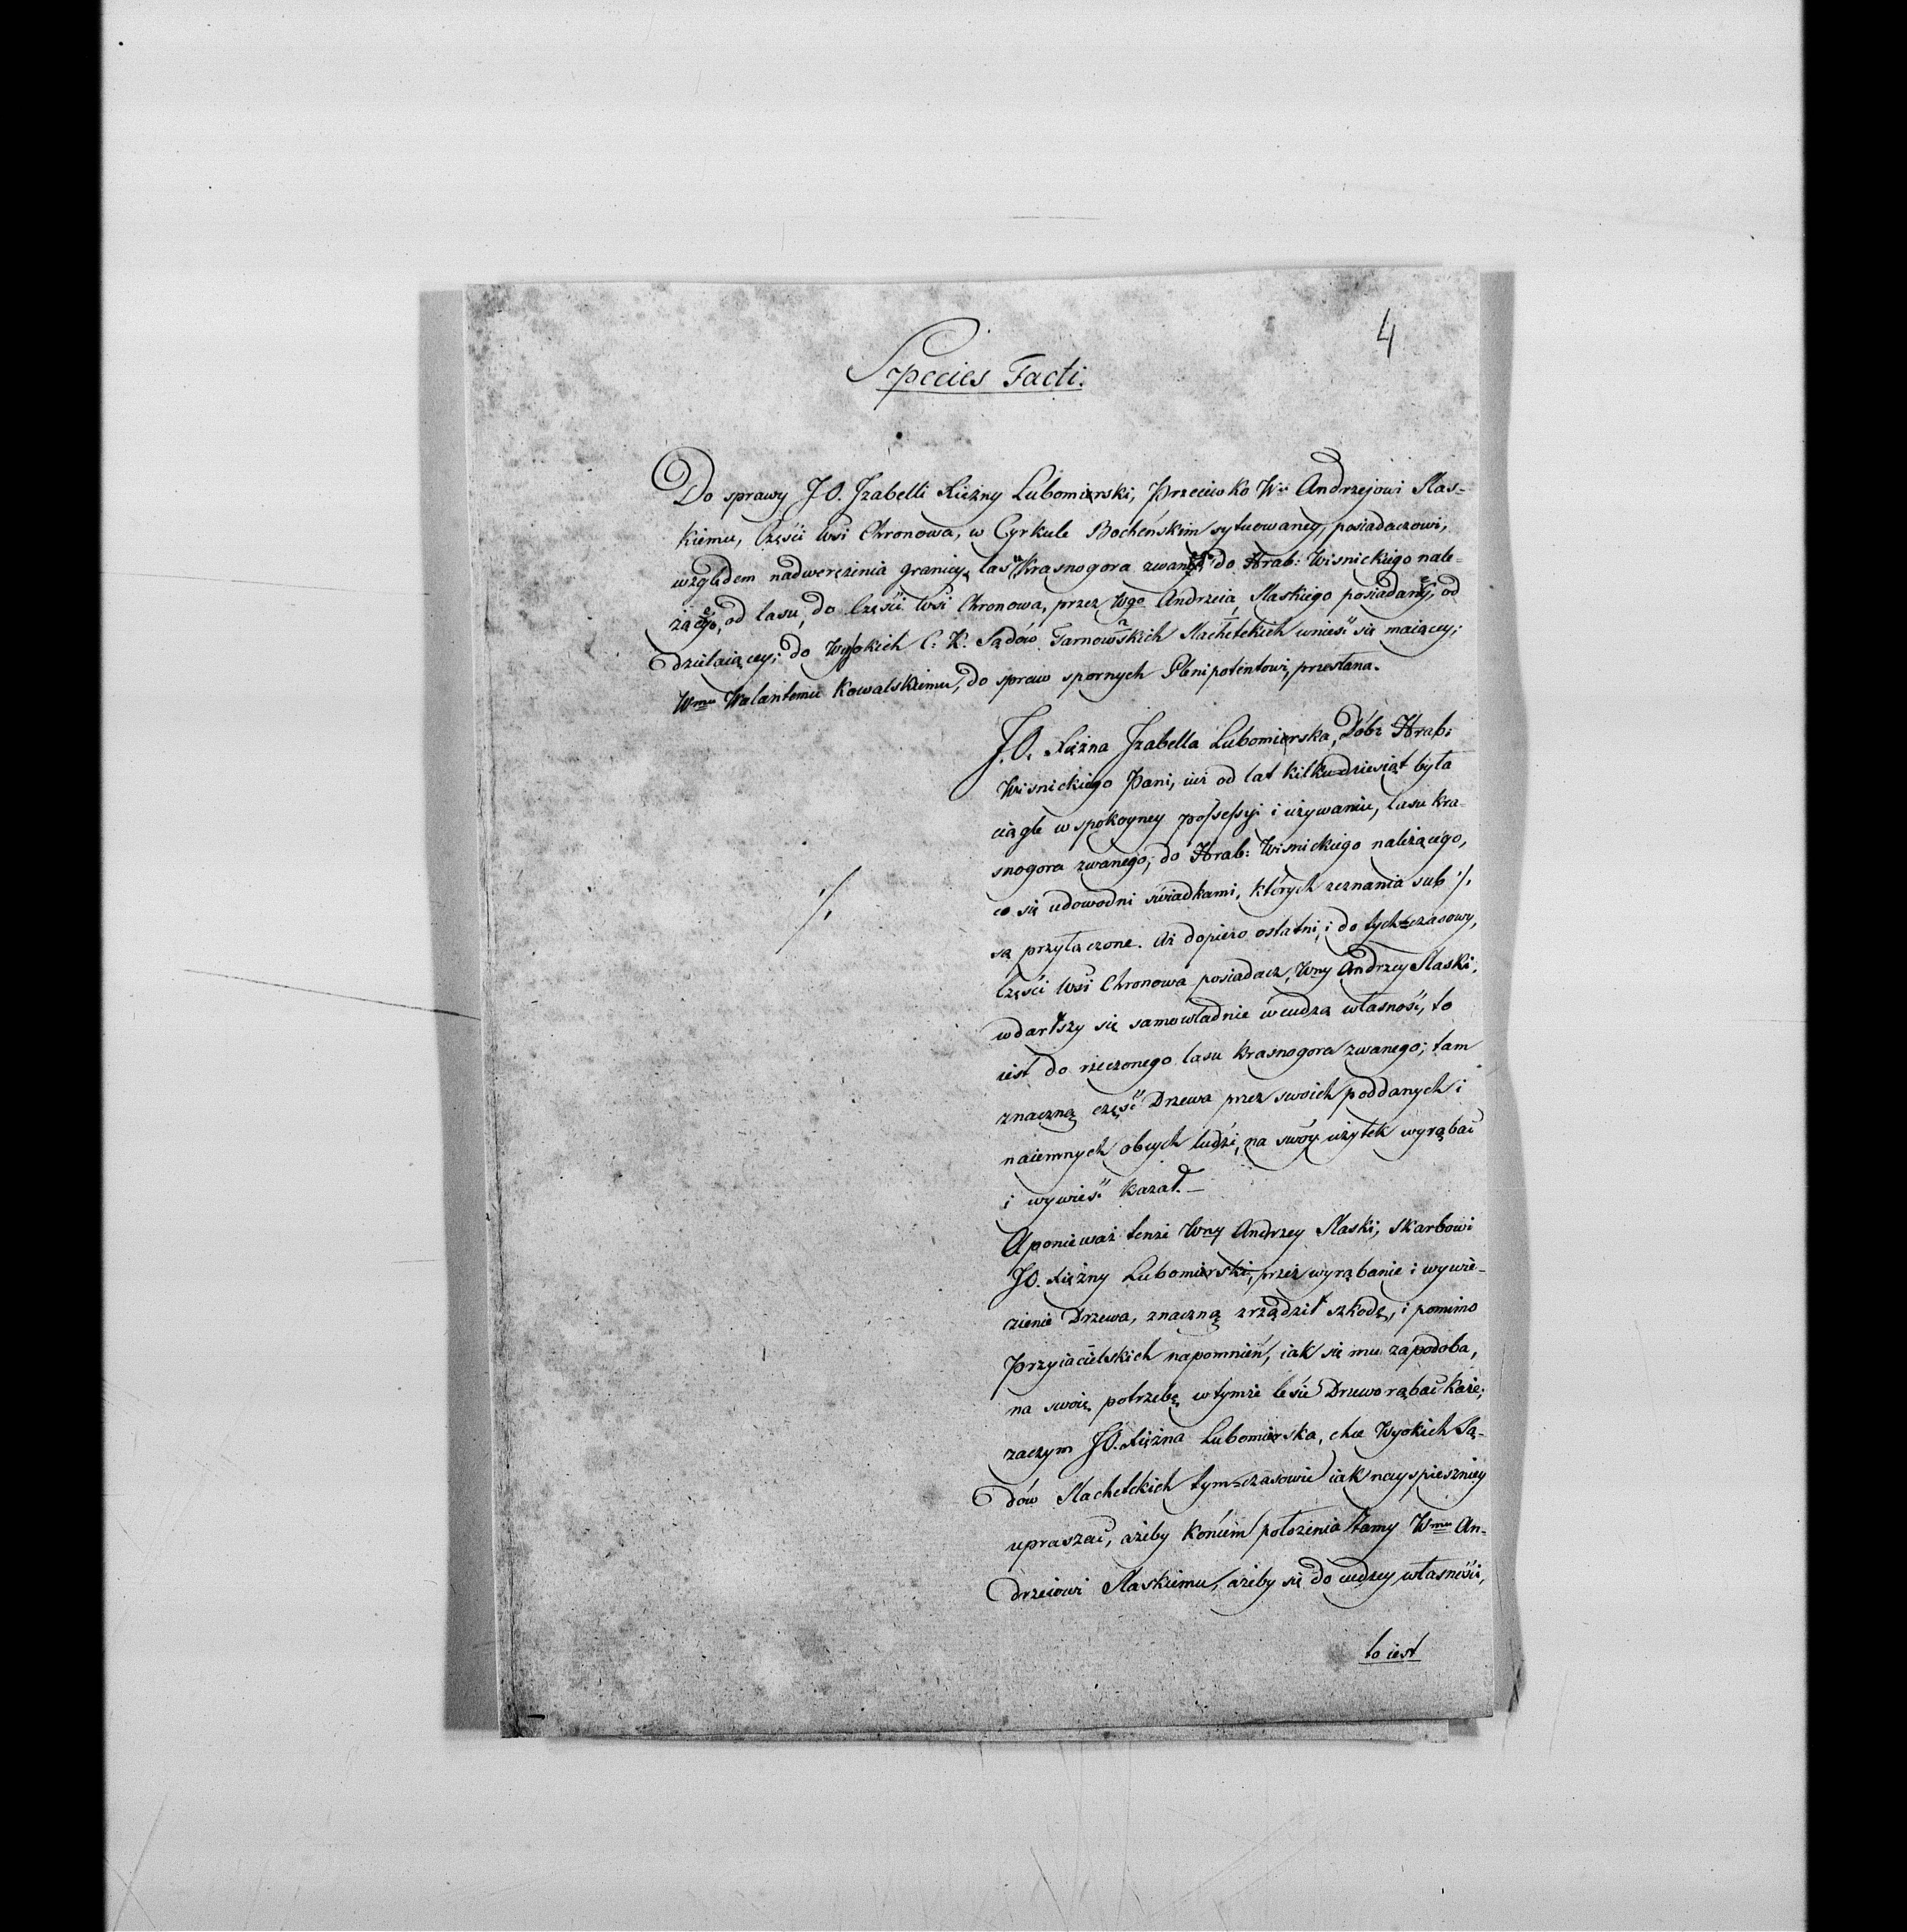 4
Species Facti.
Do sprawy J.O. Jzabelli Xiężny Lubomirski, Przeciwko W. Andrzejowi Slas-
kiemu, Części Wsi Chronowa, w Cyrkule Bocheńskim sytuowaney, posiadaczowi,
względem nadweręzenia granicy, lasu Krasnogora do Hrab: Wisnickiego nale-
od lasu, do Części Wsi Chronowa, przez Wgo Andrzeia Slaskiego posiadaney, od
dzielaiącey; do Wysokich C: K. Sądów Tarnowskich Slachetckich wnieść się maiącey;
Wmu Walantemu Kowalskiemu, do spraw spornych Plenipotentowi, przesłana.
J.O. Xiężna Jzabella Lubomirska, Dóbr Hrab:
Wisnickiego Pani, iuż od lat kilku=dziesiąt była
ciągle w spokoyney possessyi i używaniu, lasu Kra-
snogora zwanego; do Hrab: Wisnickiego należącego,
co się udowodni świadkami, których zeznania sub ·/.
są przyłączone. Aż dopiero ostatni, i do tych=czasowy,
Części Wsi Chronowa posiadacz, Wny Andrzey Slaski,
wdarłszy się samowładnie w cudzą własność, to
iest do rzeczonego lasu Krasnogora zwanego; tam
znaczną część Drzewa przez swoich poddanych i
naiemnych obcych ludzi, na swóy użytek wyrąbać
i wywieść kazał. —
A ponieważ tenże Wny Andrzey Slaski, Skarbowi
JO. Xiężny Lubomirski, przez wyrąbanie i wywie-
zienie Drzewa, znaczną zrządził szkodę, i pomimo
Przyiacielskich napomnień, iak się mu zapodoba,
na swoię potrzebę w tymże lesie Drzewo rąbać każe;
zaczym JO. Xiężna Lubomirska, chce Wysokich Są-
dów Slachetckich tym=czasowie iak nayspieszniey
upraszać, ażeby Końcem położenia Tamy Wmu An-
drzeiowi Slaskiemu, ażeby się do cudzey własności,
to iest
·/.